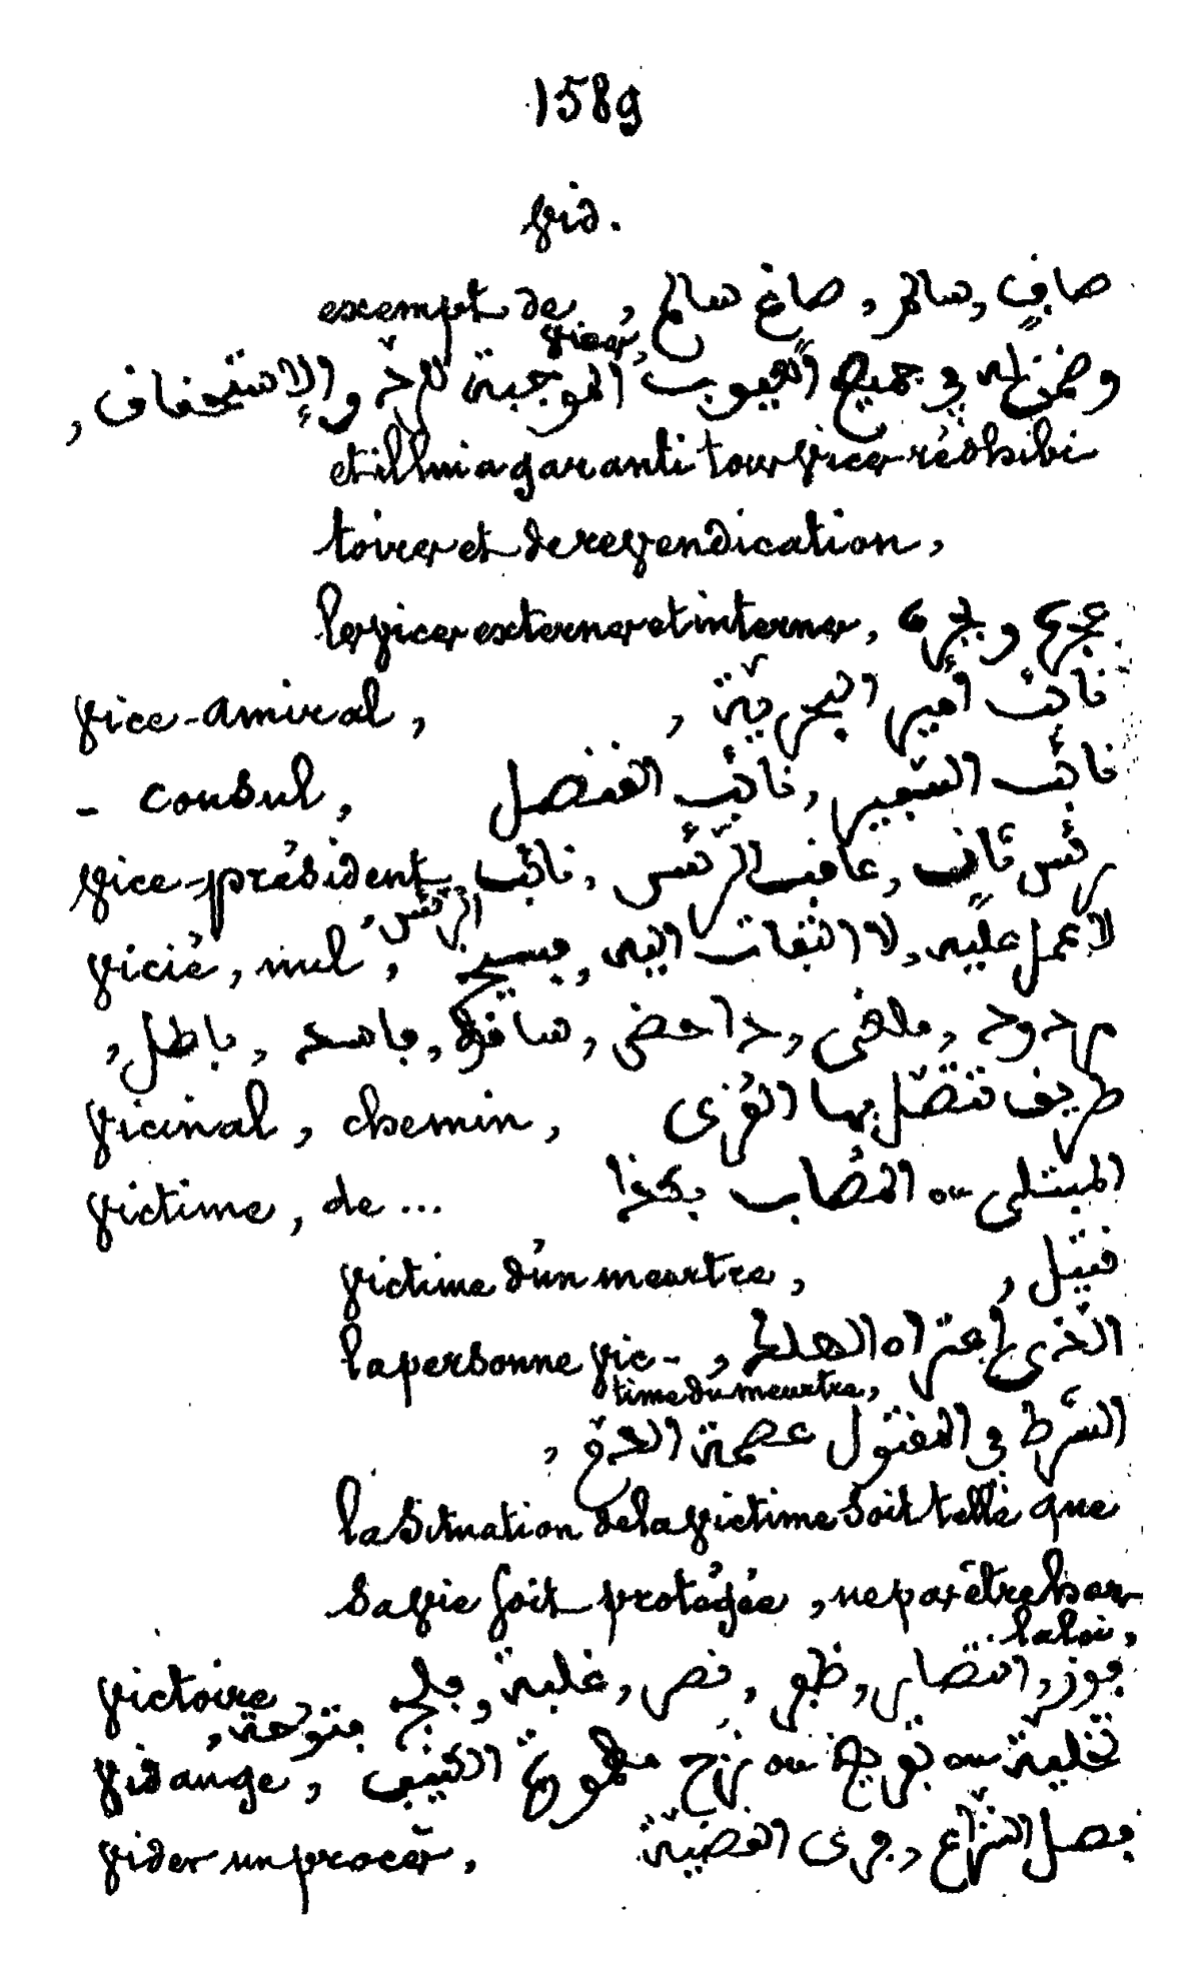 1589
vid.
exempt de vices, صافٍ, سالم, صاغ سالم
وضمن له في جميع العيوب الموجبة للردّ والإستحقاق,
et il lui a garanti tous vices rédhibi
toires et de revendication,
les vices externes et internes, عجره وبجره
vice-amiral, نائب أمير البحريّة
- consul, نائب السّفير, نائب القنصل
vice-président, رئس ثانٍ, عاقب الرّئس, نائب الرّئس,
vicié, nul, لا عمل عليه, لا التفات اليه, فسيخ
مردود, ملغى, داحض, ساقط, فاسد, باطل,
vicinal, chemin, طريق تتّصل بها القُرى
victime, de ... المبتلى ou المُصاب بكذا
victime d'un meurtre, قتيل
la personne vic- الّذى إعتراه الهلك,
time du meurtre,
الشّرط في المقتول عصمة الدّم,
la situation de la victime soit telle que
sa vie soit protégée, ne pas être hors
la loi,
victoire, فوز, انتصار, ظفر, نصر, غلبة, فلج
فتوحة,
vidange, تخلية ou تفريغ ou نزح مطمورة الكنيف
vider un procès, فصل النّزاع, فرى القضيّة